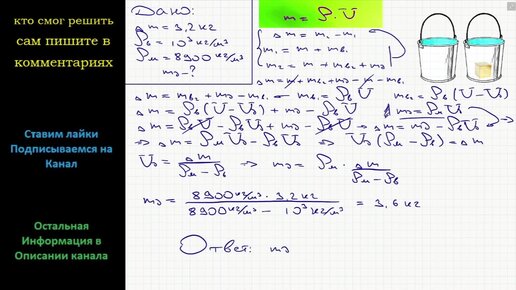 кто смог решить
сам пишите в
комментариях
Ставим лайки
Подписываемся на
Канал
Остальная
Информация в
Описании канала
Дано:
Δm = 3,2 кг
ρв = 10³ кг/м³
ρм = 8900 кг/м³
mэ - ?
m = ρ·V
Δm = m₂ - m₁
m₁ = m + mв₁
m₂ = m + mв₂ + mэ
Δm = m + mв₂ + mэ - m - mв₁
Δm = mв₂ + mэ - mв₁ mв₁ = ρв V mв₂ = ρв (V - Vэ)
Δm = ρв (V - Vэ) + mэ - ρв V mэ = ρм Vэ
Δm = ρв V - ρв Vэ + mэ - ρв V
⇒ Δm = ρм Vэ - ρв Vэ ⇒ Vэ (ρм - ρв) = Δm
Vэ = Δm / (ρм - ρв) ⇒ mэ = ρм · Δm / (ρм - ρв)
mэ = 8900 кг/м³ · 3,2 кг / (8900 кг/м³ - 10³ кг/м³) = 3,6 кг
Ответ: mэ